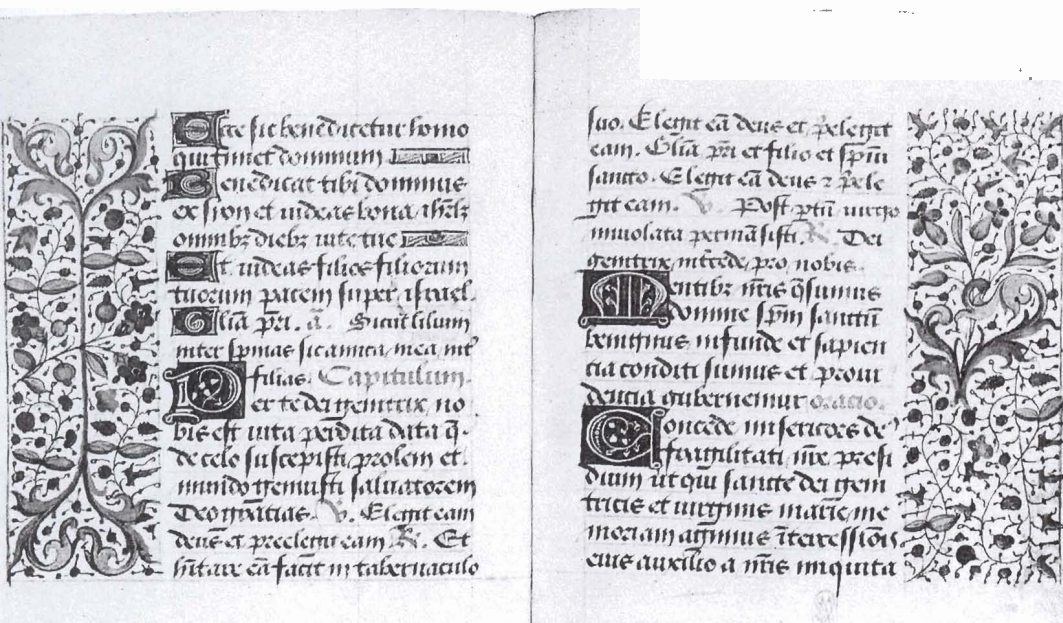 Ecce sic benedicetur homo
qui timet dominum
Benedicat tibi dominus
ex sion et uideas bona ihrlꝫ
omnibꝫ diebꝫ uite tue
Et uideas filios filiorum
tuorum pacem super israel.
Głia p̃ri. ã. Sicut lilium
inter spinas sic amica mea int̾
filias. Capitulum.
Per te dei genitrix no
bis est uita perdita data q̃.
de celo suscepisti prolem et
mundo genuisti saluatorem
Deo gratias. V. Elegit eam
deus et preelegit eam R. Et
hĩtare eã facit in tabernaculo
suo. Elegit eã deus et p̃elegit
eam. Głia p̃ri et filio et sp̃iti
sancto. Elegit eã deus ⁊ p̃ele
git eam. V. Post ptũ uirgo
inuiolata permãsisti. R. Dei
genitrix intcede pro nobis.
Mentibꝫ nr̃is q̃sumus
domine sp̃m sanctũ
benignus infunde et sapien
tia conditi sumus et proui
dencia gubernemur oracio.
Concede misericors de
us fragilitati nr̃e presi
dium ut qui sancte dei geni
tricis et uirginis marie me
moriam agimus ĩtercessionis
eius auxilio a nr̃is iniquita